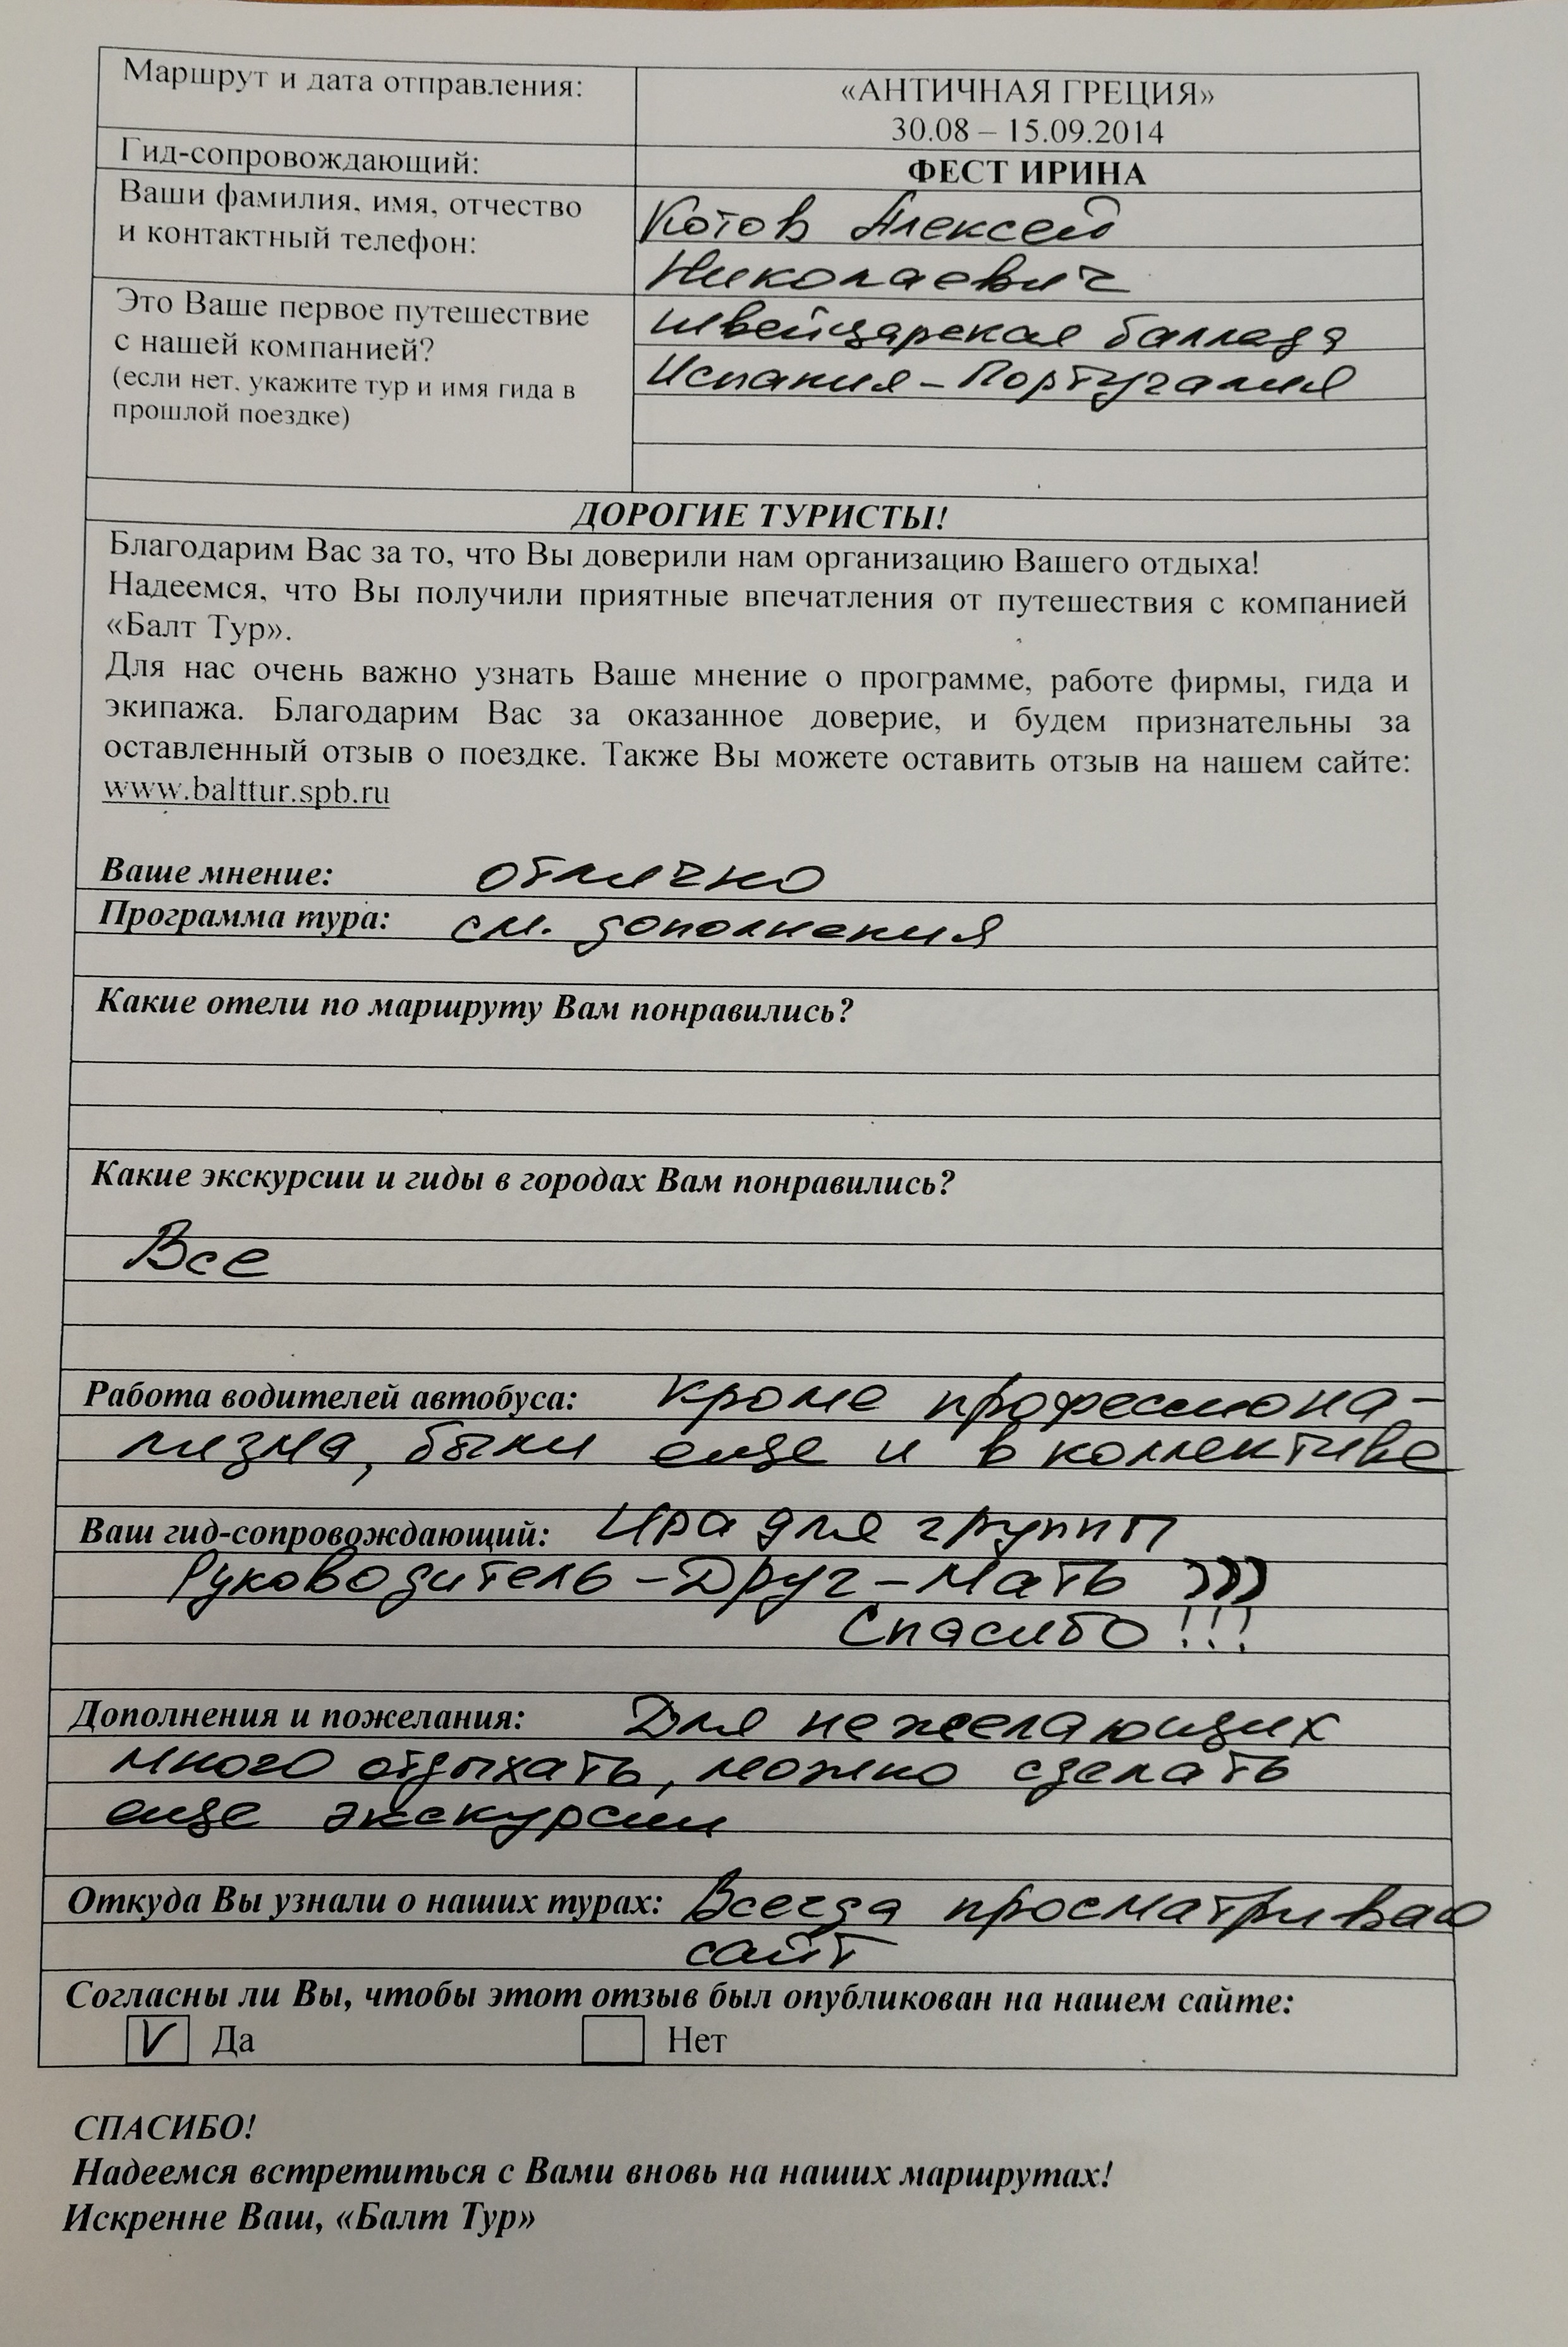 Маршрут и дата отправления:
«АНТИЧНАЯ ГРЕЦИЯ»
30.08 – 15.09.2014
Гид-сопровождающий:
ФЕСТ ИРИНА
Ваши фамилия, имя, отчество
и контактный телефон:
Котов Алексей
Николаевич
Это Ваше первое путешествие
с нашей компанией?
(если нет, укажите тур и имя гида в
прошлой поездке)
Швейцарская баллада
Испания – Португалия
ДОРОГИЕ ТУРИСТЫ!
Благодарим Вас за то, что Вы доверили нам организацию Вашего отдыха!
Надеемся, что Вы получили приятные впечатления от путешествия с компанией
«Балт Тур».
Для нас очень важно узнать Ваше мнение о программе, работе фирмы, гида и
экипажа. Благодарим Вас за оказанное доверие, и будем признательны за
оставленный отзыв о поездке. Также Вы можете оставить отзыв на нашем сайте:
www.balttur.spb.ru
Ваше мнение: отлично
Программа тура: см. дополнения
Какие отели по маршруту Вам понравились?
Какие экскурсии и гиды в городах Вам понравились?
Все
Работа водителей автобуса: кроме професиона-
лизма, были еще и в коллективе
Ваш гид-сопровождающий: Ира для групп
Руководитель – Друг – Мать )))
Спасибо!!!
Дополнения и пожелания: Для нежелающих
много отдыхать, можно сделать
еще экскурсии
Откуда Вы узнали о наших турах: Всегда просматриваю
сайт
Согласны ли Вы, чтобы этот отзыв был опубликован на нашем сайте:
V Да Нет
СПАСИБО!
Надеемся встретиться с Вами вновь на наших маршрутах!
Искренне Ваш, «Балт Тур»